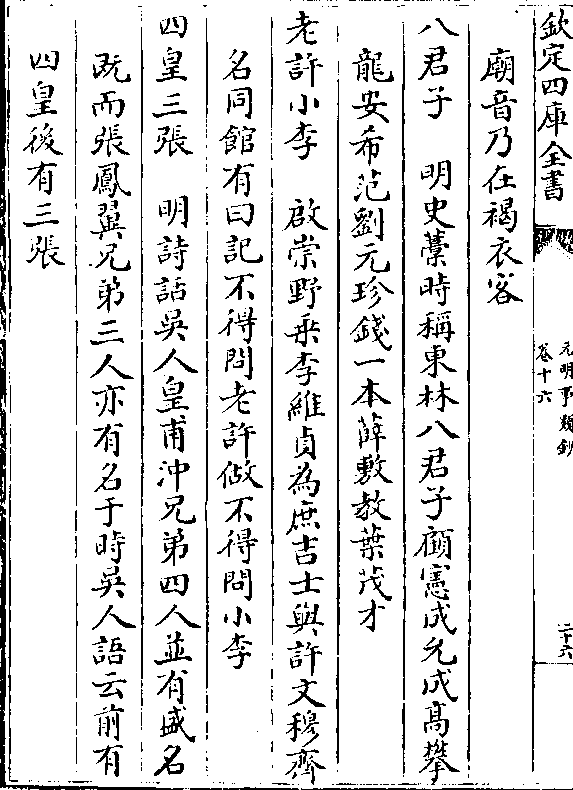 欽定四庫全書
元明事類鈔
卷十六
二十六
廟音乃在褐衣客
八君子　明史藁時稱東林八君子顧憲成允成高攀
龍安希范劉元珍錢一本薛敷教葉茂才
老許小李　啟崇野乘李維貞為庶吉士與許文穆齊
名同館有曰記不得問老許做不得問小李
四皇三張　明詩話吳人皇甫沖兄弟四人並有盛名
既而張鳳翼兄弟三人亦有名于時吳人語云前有
四皇後有三張